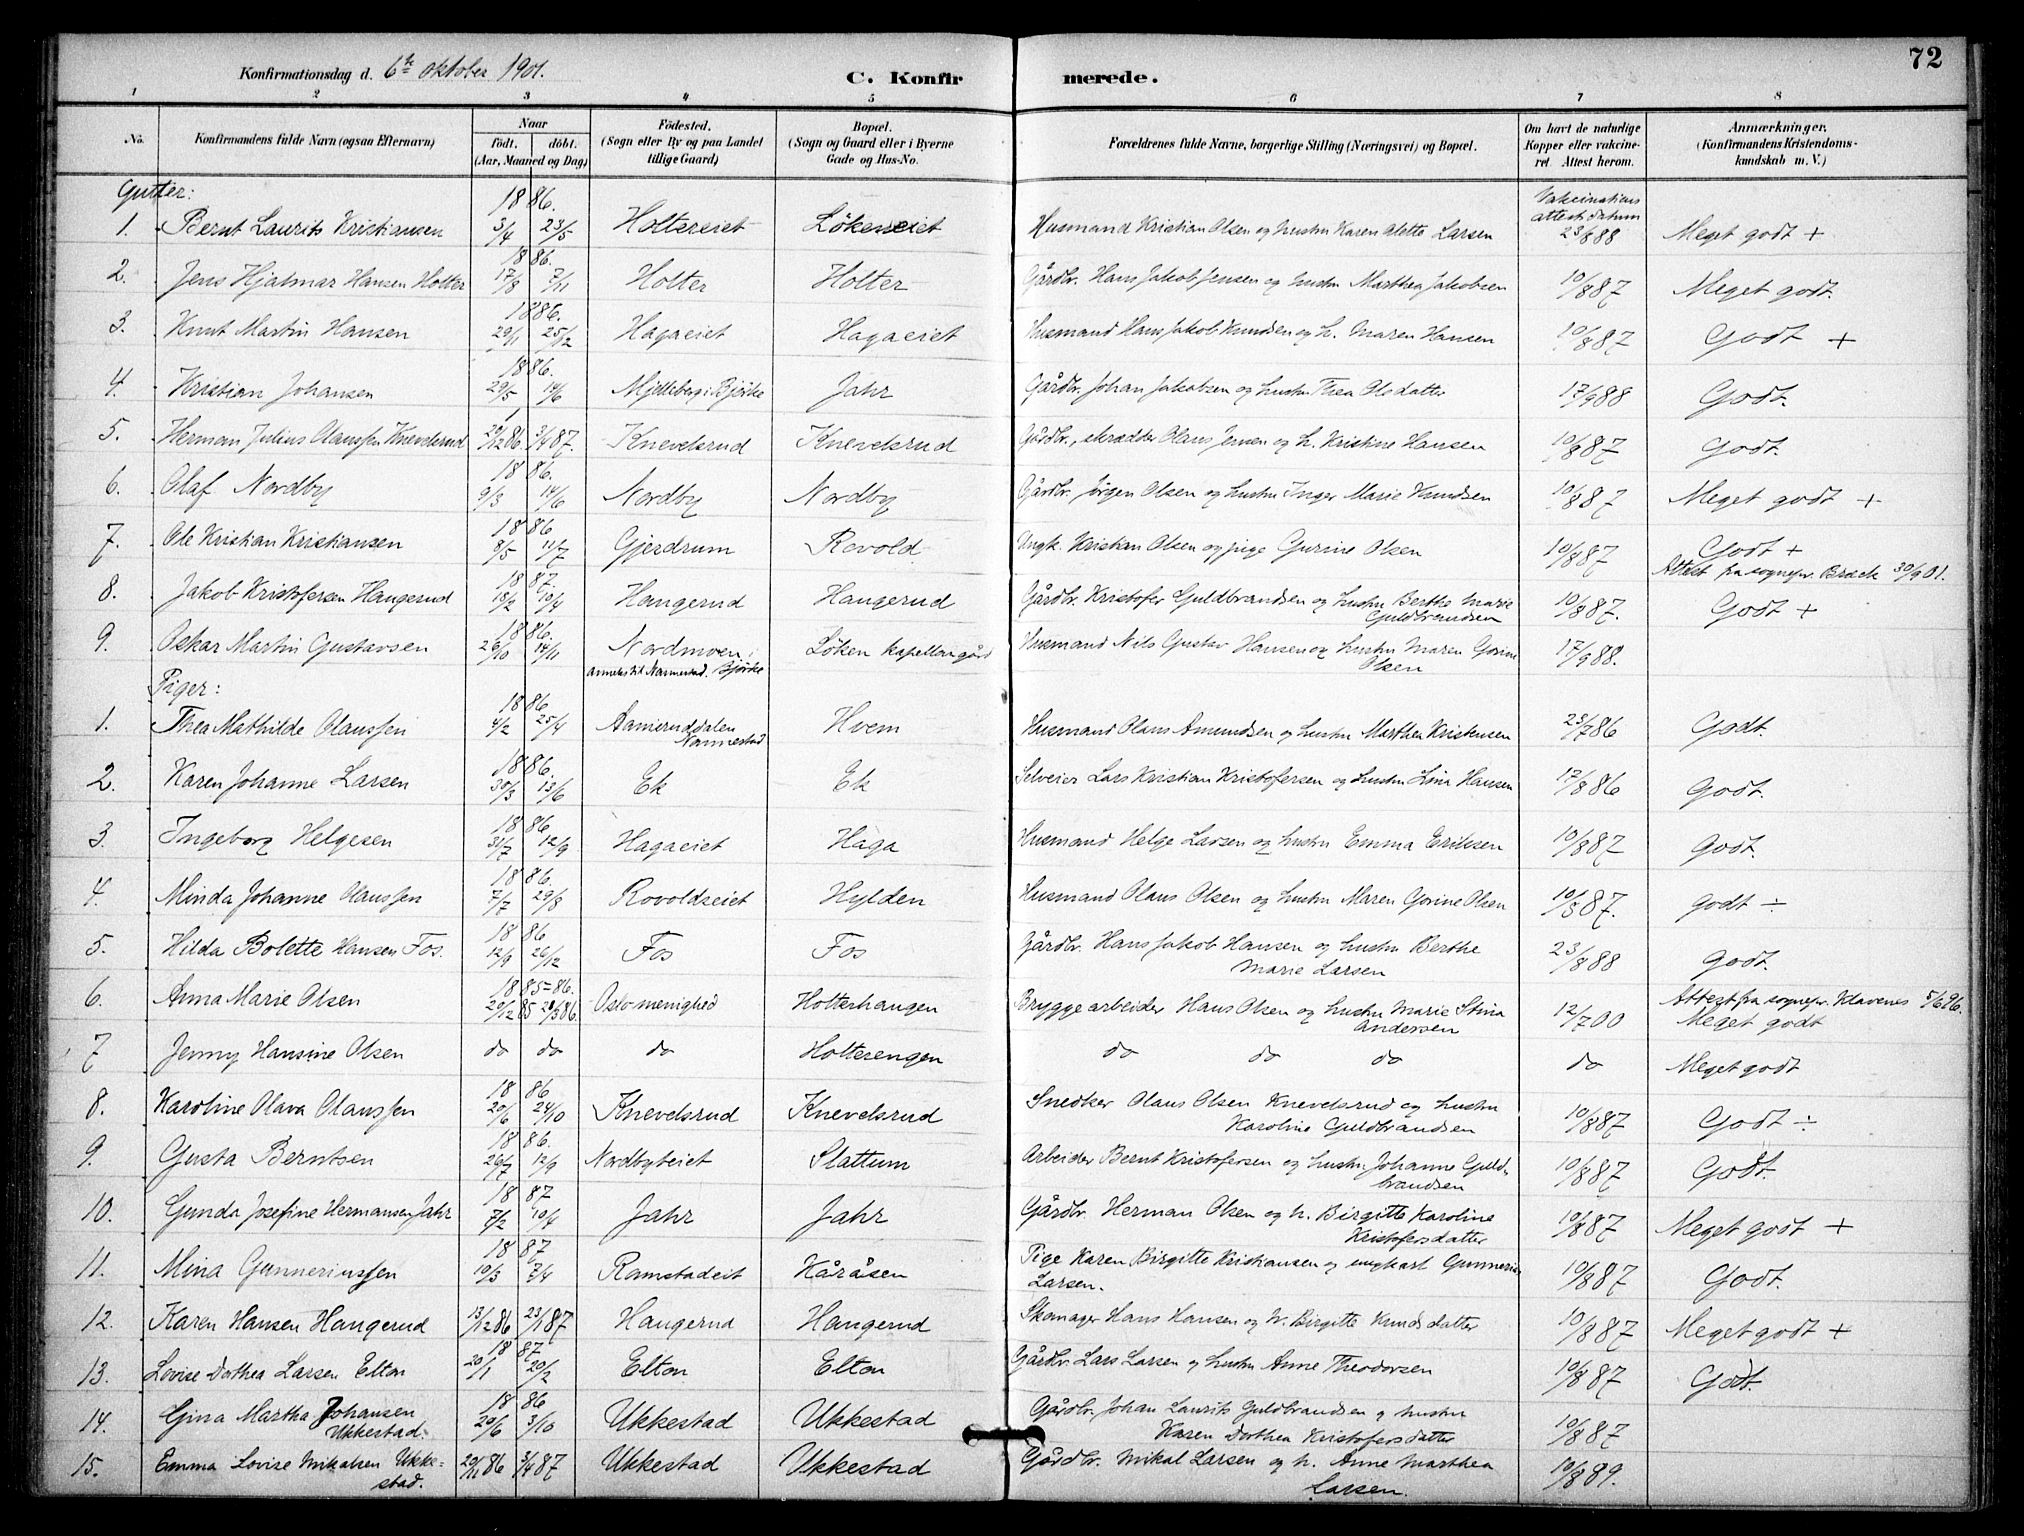 72
Konfirmationsdag d. 6te oktober 1901.
C. Konfirmerede.
1 2 3 4 5 6 7 8
No. Konfirmandens fulde Navn (ogsaa Efternavn) Naar født. døbt. (Aar, Maaned og Dag) Födested. (Sogn eller By og paa Landet tillige Gaard) Bopæl. (Sogn og Gaard eller i Byerne Gade og Hus-No. Forældrenes fulde Navne, borgerlige Stilling (Næringsvei) og Bopæl. Om havt de naturlige Kopper eller vakcineret. Attest herom. Anmærkninger. (Konfirmandens Kristendomskundskab m. V.)
Gutter:
1. Bernt Laurits Kristiansen 1886. 3/4 23/5 Holtereiet Lökeneiet Husmand Kristian Olsen og hustru Karen Alette Larsen Vakcinations attest datum 23/8 88 Meget godt +
2. Jens Hjalmar Hansen Holter 1886. 17/8 7/11 Holter Holter Gårdbr. Hans Jakob Jensen og hustru Marthea Jakobsen 10/8 87 Meget godt.
3. Knut Martin Hansen 1886. 29/11 25/12 Hagaeiet Hagaeiet Husmand Hans Jakob Knudsen og h. Maren Hansen 10/8 87 Godt +
4. Kristian Johansen 1886. 29/5 14/6 Mjölleberg i Bjørke Jahr Gårdbr. Johan Jakobsen og hustru Thea Olsdatter 17/9 88 Godt.
5. Herman Julius Olaussen Knevelsrud 29/12 86. 3/4 87. Knevelsrud Knevelsrud Gårdbr., skrædder Olaus Jensen og h. Kristine Hansen 10/8 87 Godt.
6. Olaf Nordby 1886. 9/3 14/6 Nordby Nordby Gårdbr. Jørgen Olsen og hustru Inger Marie Knudsen 10/8 87 Meget godt +
7. Ole Kristian Kristiansen 1886 8/5 11/7 Gjerdrum Rovold Ungk. Kristian Olsen og pige Gurine Olsen 10/8 87 Godt +
Attest fra sognepr. Brock 30/9 01.
8. Jakob Kristofersen Haugerud 1887. 18/2 10/4 Haugerud Haugerud Gårdbr. Kristofer Guldbrandsen og hustru Berthe Marie Guldbrandsen 10/8 87. Godt +
9. Oskar Martin Gustavsen 1886. 26/10 14/11 Nordmoen i Bjørke annex til Nannestad. Löken kapellangård Husmand Nils Gustav Hansen og hustru Maren Gorine Olsen 17/9 88.
Piger:
1. Thea Mathilde Olaussen 1886 4/2 25/4 Aameruddalen Nannestad Hvem Husmand Olaus Amundsen og hustru Marthea Kristiansen 23/7 86 Godt.
2. Karen Johanne Larsen 1886. 30/3 13/6 Ek Ek Selveier Lars Kristian Kristofersen og hustru Lina Hansen 17/8 86 Godt.
3. Ingeborg Helgesen 1886 31/7 12/9 Hagaeiet Haga Husmand Helge Larsen og hustru Emma Eriksen 10/8 87 Godt.
4. Minda Johanne Olaussen 1886. 7/7 29/8 Rovoldseiet Hylden Husmand Olaus Olsen og hustru Maren Gorine Olsen 10/5 87. godt ÷
5. Hilda Bolette Hansen Fos. 1886 12/9 26/12 Fos Fos Gårdbr. Hans Jakob Hansen og hustru Berthe Marie Larsen 23/8 88 godt.
6. Anna Marie Olsen 1885=86. 29/12 85 28/3 86. Oslo menighed Holterhaugen Bryggearbeider Hans Olsen og hustru Marie Stina Andersen 12/7 00 Attest fra sognepr. Klavenes 5/6 96. Meget godt
7 Jenny Hansine Olsen do do do Holterengen do do do do Meget godt
8. Karoline Olava Olaussen 1886 20/6 24/10 Knevelsrud Knevelsrud Snedker Olaus Olsen Knevelsrud og hustru Karoline Guldbrandsen 10/8 87 Godt ÷
9. Gusta Berntsen 1886. 26/7 12/9 Nordbyeiet Slattum Arbeider Bernt Kristofersen og hustru Johanne Guldbrandsen 10/8 87 Godt.
10. Gunda Josefine Hermansen Jahr 1887 7/2 10/4 Jahr Jahr Gårdbr. Herman Olsen og h. Birgitte Karoline Kristofersdatter 10/8 87 Meget godt +
11. Mina Gunneriussen 1887 10/3 7/4 Ramstadeit Kåråsen Pige Karen Birgitte Kristiansen og ungkarl Gunnerius Larsen. 10/8 87 Godt.
12. Karen Hansen Haugerud 13/12 86 23/1 87 Haugerud Haugerud Skomager Hans Hansen og h. Birgitte Knudsdatter 10/8 87 Meget godt +
13. Lovise Dorthea Larsen Elton 1887 20/1 20/2 Elton Elton Gårdbr. Lars Larsen og hustru Anne Theodorsen 10/8 87 Godt.
14. Gina Martha Johansen Ukkestad. 1886 29/6 3/10 Ukkestad Ukkestad Gårdbr. Johan Laurits Guldbrandsen og hustru Karen Dorthea Kristofersdatter 10/8 87
15. Emma Lovise Mikalsen Ukkestad. 29/11 86 3/4 87 Ukkestad Ukkestad Gårdbr. Mikal Larsen og h. Anne Marthea Larsen. 10/8 89.